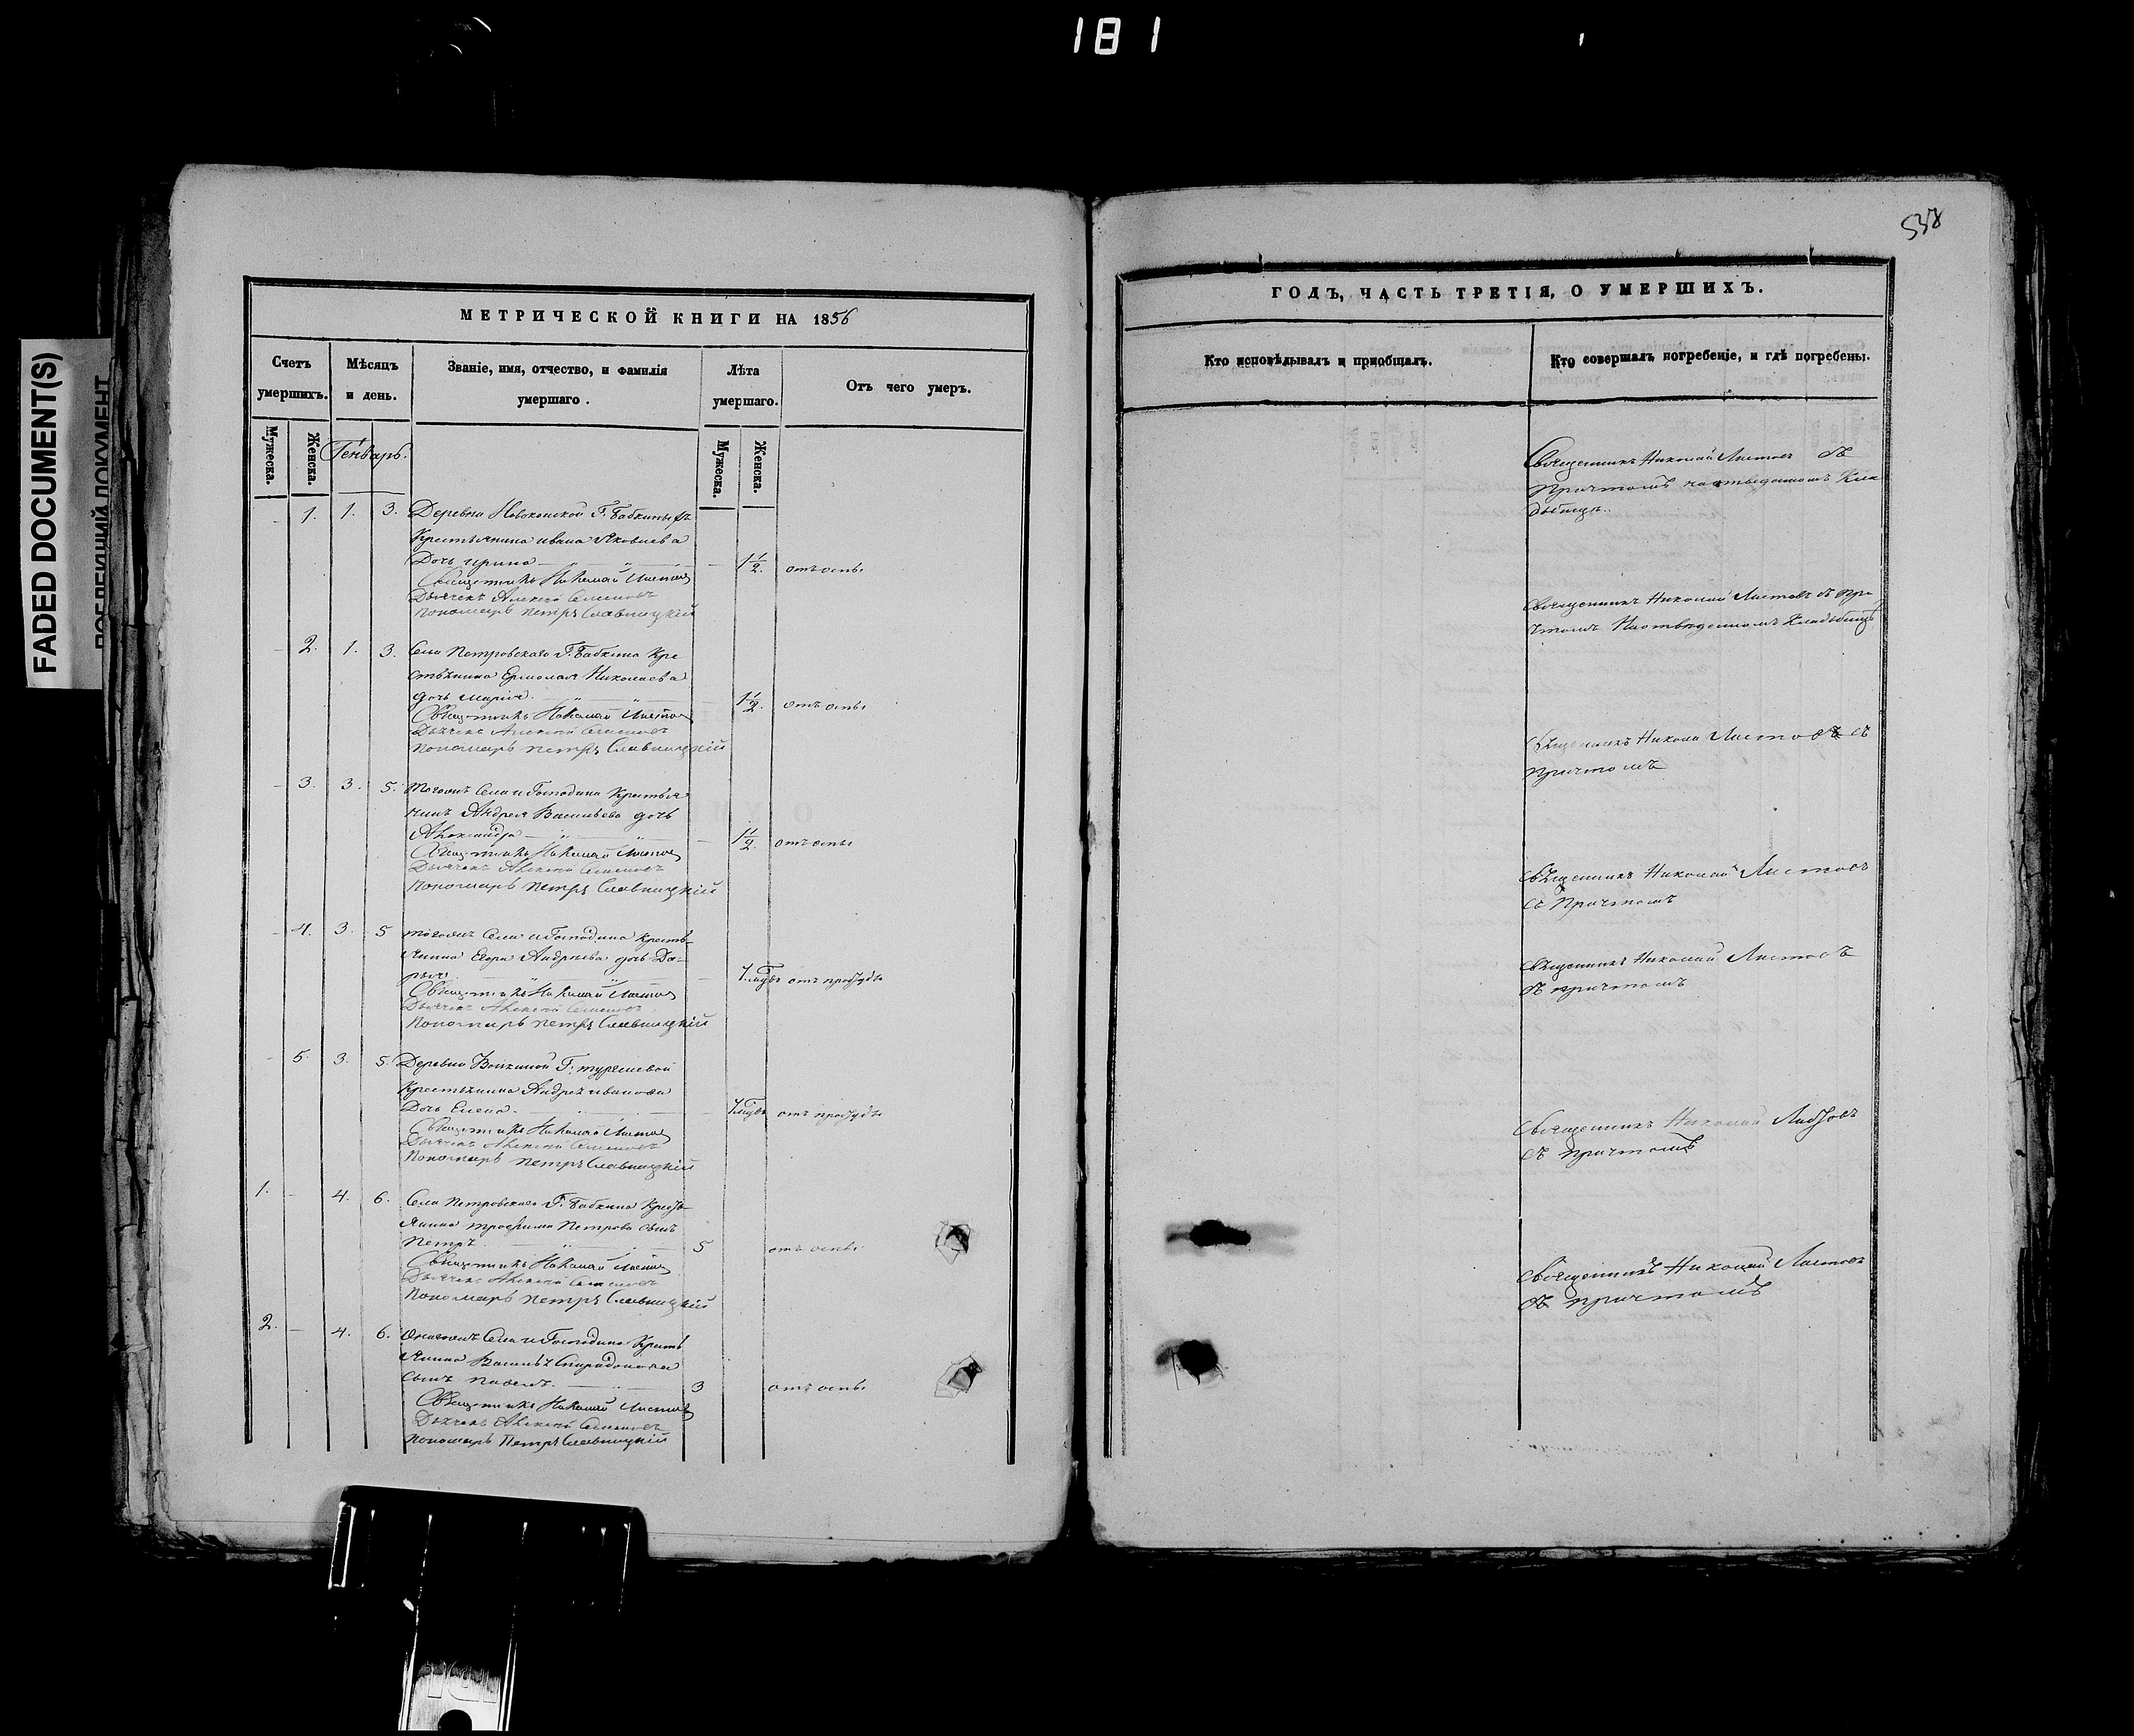 181
FADED DOCUMENT(S)
538
МЕТРИЧЕСКОЙ КНИГИ НА 1856
ГОДЪ, ЧАСТЬ ТРЕТІЯ, О УМЕРШИХЪ.
Счетъ умершихъ.
Мѣсяцъ и день.
Званіе, имя, отчество, и фамилія умершаго.
Лѣта умершаго.
Отъ чего умеръ.
Кто исповѣдывалъ и приобщалъ.
Кто совершалъ погребеніе, и гдѣ погребены.
Мужеска.
Женска.
Генварь.
Мужеска.
Женска.
1. 1. 3. Деревни Г. Бабкины
Крестьянина Ивана Яковлева
Дочь Ирина 1 1/2. отъ оспы
Священникъ Николай Листовъ
Дьячекъ Алексей Семеновъ
Пономарь Петръ Славницкій
Священникъ Николай Листовъ съ
Причтомъ на отведенномъ Кла
дбищѣ.
2. 1. 3. Села Петровскаго Г. Бабкина Кре
стьянина Ермолая Николаева
дочь Марія 1 1/2. отъ оспы
Священникъ Николай Листовъ
Дьячекъ Алексей Семеновъ
Пономарь Петръ Славницкій
Священникъ Николай Листовъ съ При
чтомъ На отведенномъ Кладбищѣ
3. 3. 5. Тогожъ Села и Господина Крестья
нина Андрея Васильева дочь
Александра 1 1/2. отъ оспы
Священникъ Николай Листовъ
Дьячекъ Алексей Семеновъ
Пономарь Петръ Славницкій
Священникъ Николай Листовъ съ
Причтомъ
4. 3. 5 тогожъ Села и Господина Кресть
янина Егора Андреева дочь Да-
рья отъ простуды
Священникъ Николай Листовъ
Дьячекъ Алексей Семеновъ
Пономарь Петръ Славницкій
Священникъ Николай Листовъ
съ Причтомъ
5. 3. 5. Деревни Г.
Крестьянина Андрея Иванова
Дочь Елена отъ простуды
Священникъ Николай Листовъ
Дьячекъ Алексей Семеновъ
Пономарь Петръ Славницкій
Священникъ Николай Листовъ
съ причтомъ
1. 4. 6. Села Петровскаго Г. Бабкина Кресть
янина Трофима Петрова сынъ
Петръ 5 отъ оспы
Священникъ Николай Листовъ
Дьячекъ Алексей Семеновъ
Пономарь Петръ Славницкій
Священникъ Николай Листовъ
съ причтомъ
2. 4. 6. Онагожъ Села и Господина Кресть
янина Василья Спиридонова
сынъ Павелъ. 3 отъ оспы
Священникъ Николай Листовъ
Дьячекъ Алексей Семеновъ
Пономарь Петръ Славницкій
Священникъ Николай Листовъ
съ причтомъ